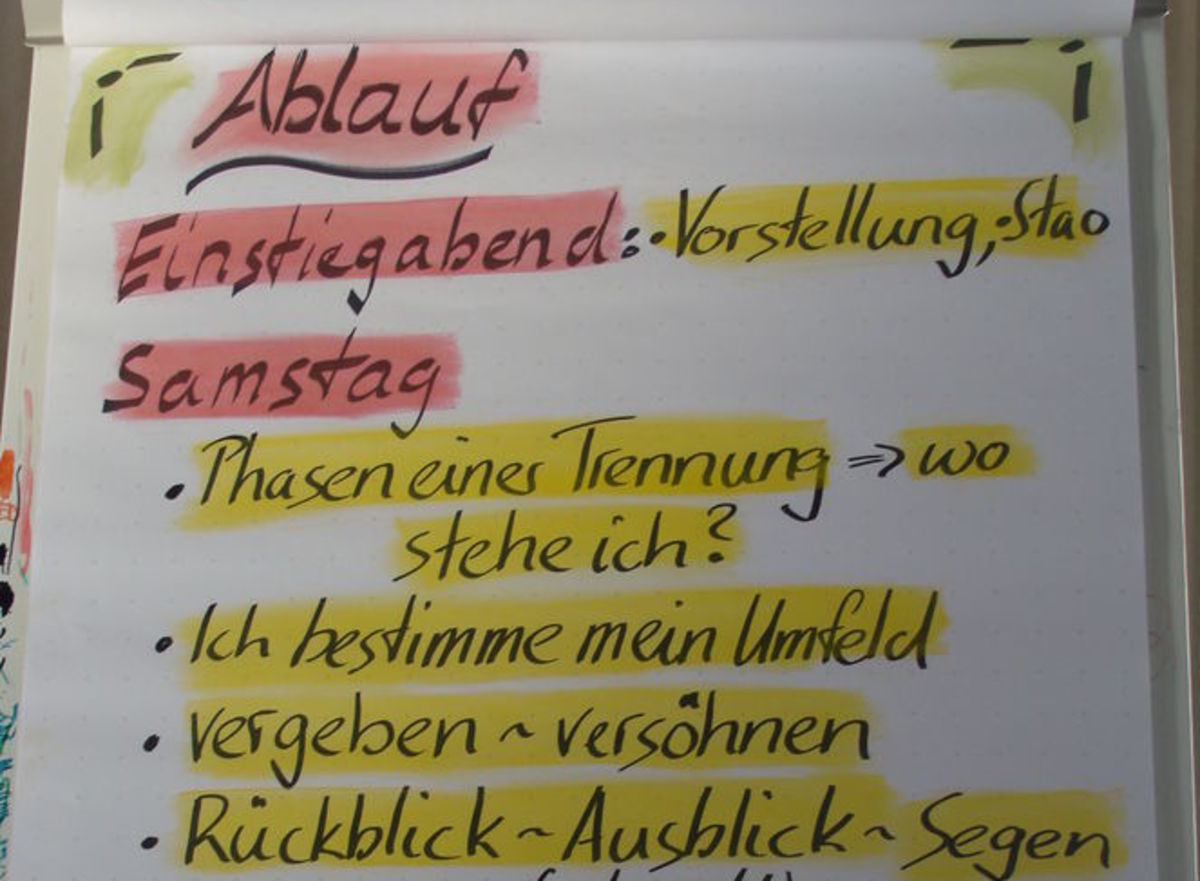 Ablauf
Einstiegabend: • Vorstellung, • Stao
Samstag
• Phasen einer Trennung => wo
stehe ich?
• Ich bestimme mein Umfeld
• vergeben ~ versöhnen
• Rückblick ~ Ausblick ~ Segen